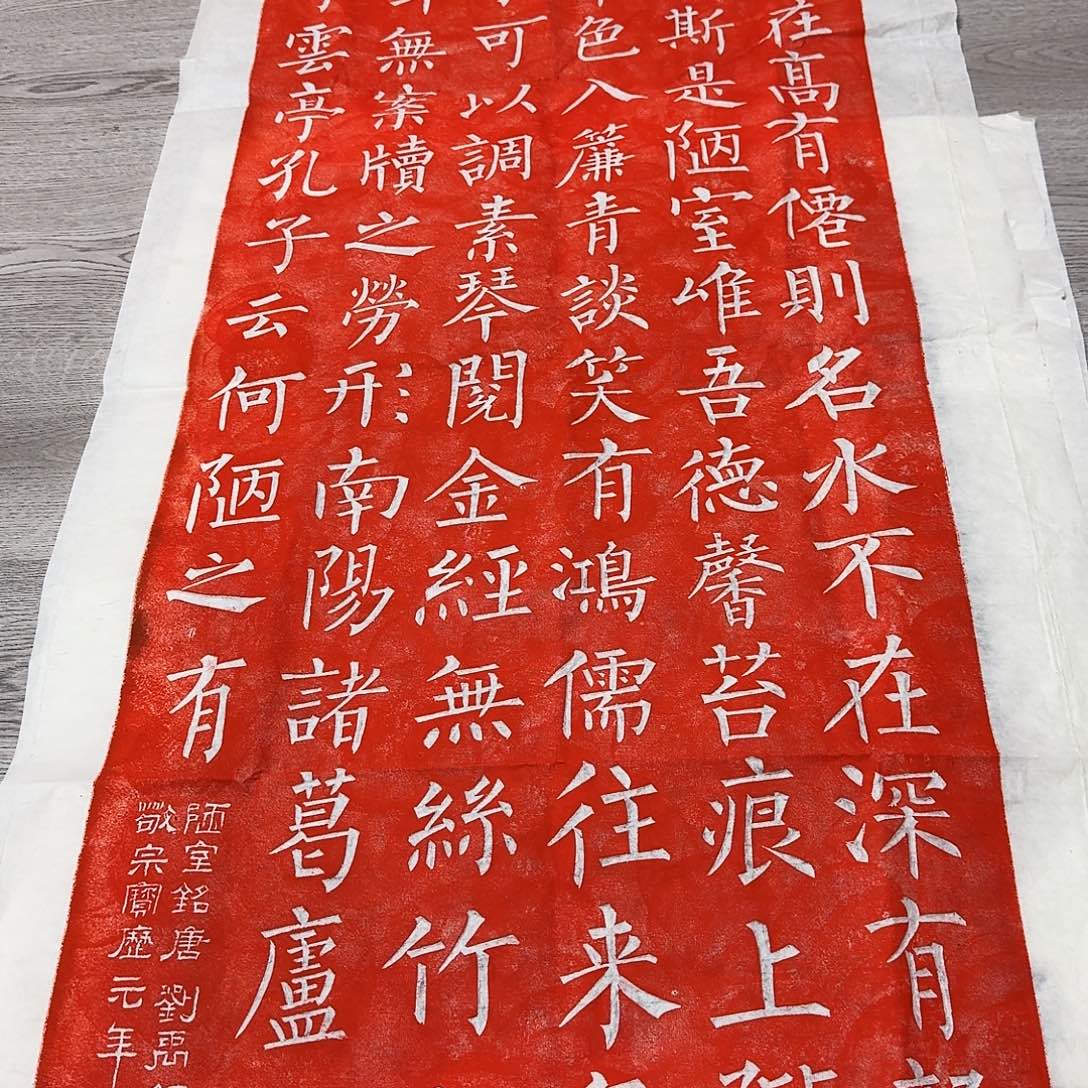 在髙有僊則名水不在深有
斯是陋室唯吾德馨苔痕上
色入簾青談笑有鴻儒往来
可以調素琴閱金經無絲竹
無案牘之勞形南陽諸葛廬
雲亭孔子云何陋之有
陋室銘唐劉禹
敬宗寶歷元年